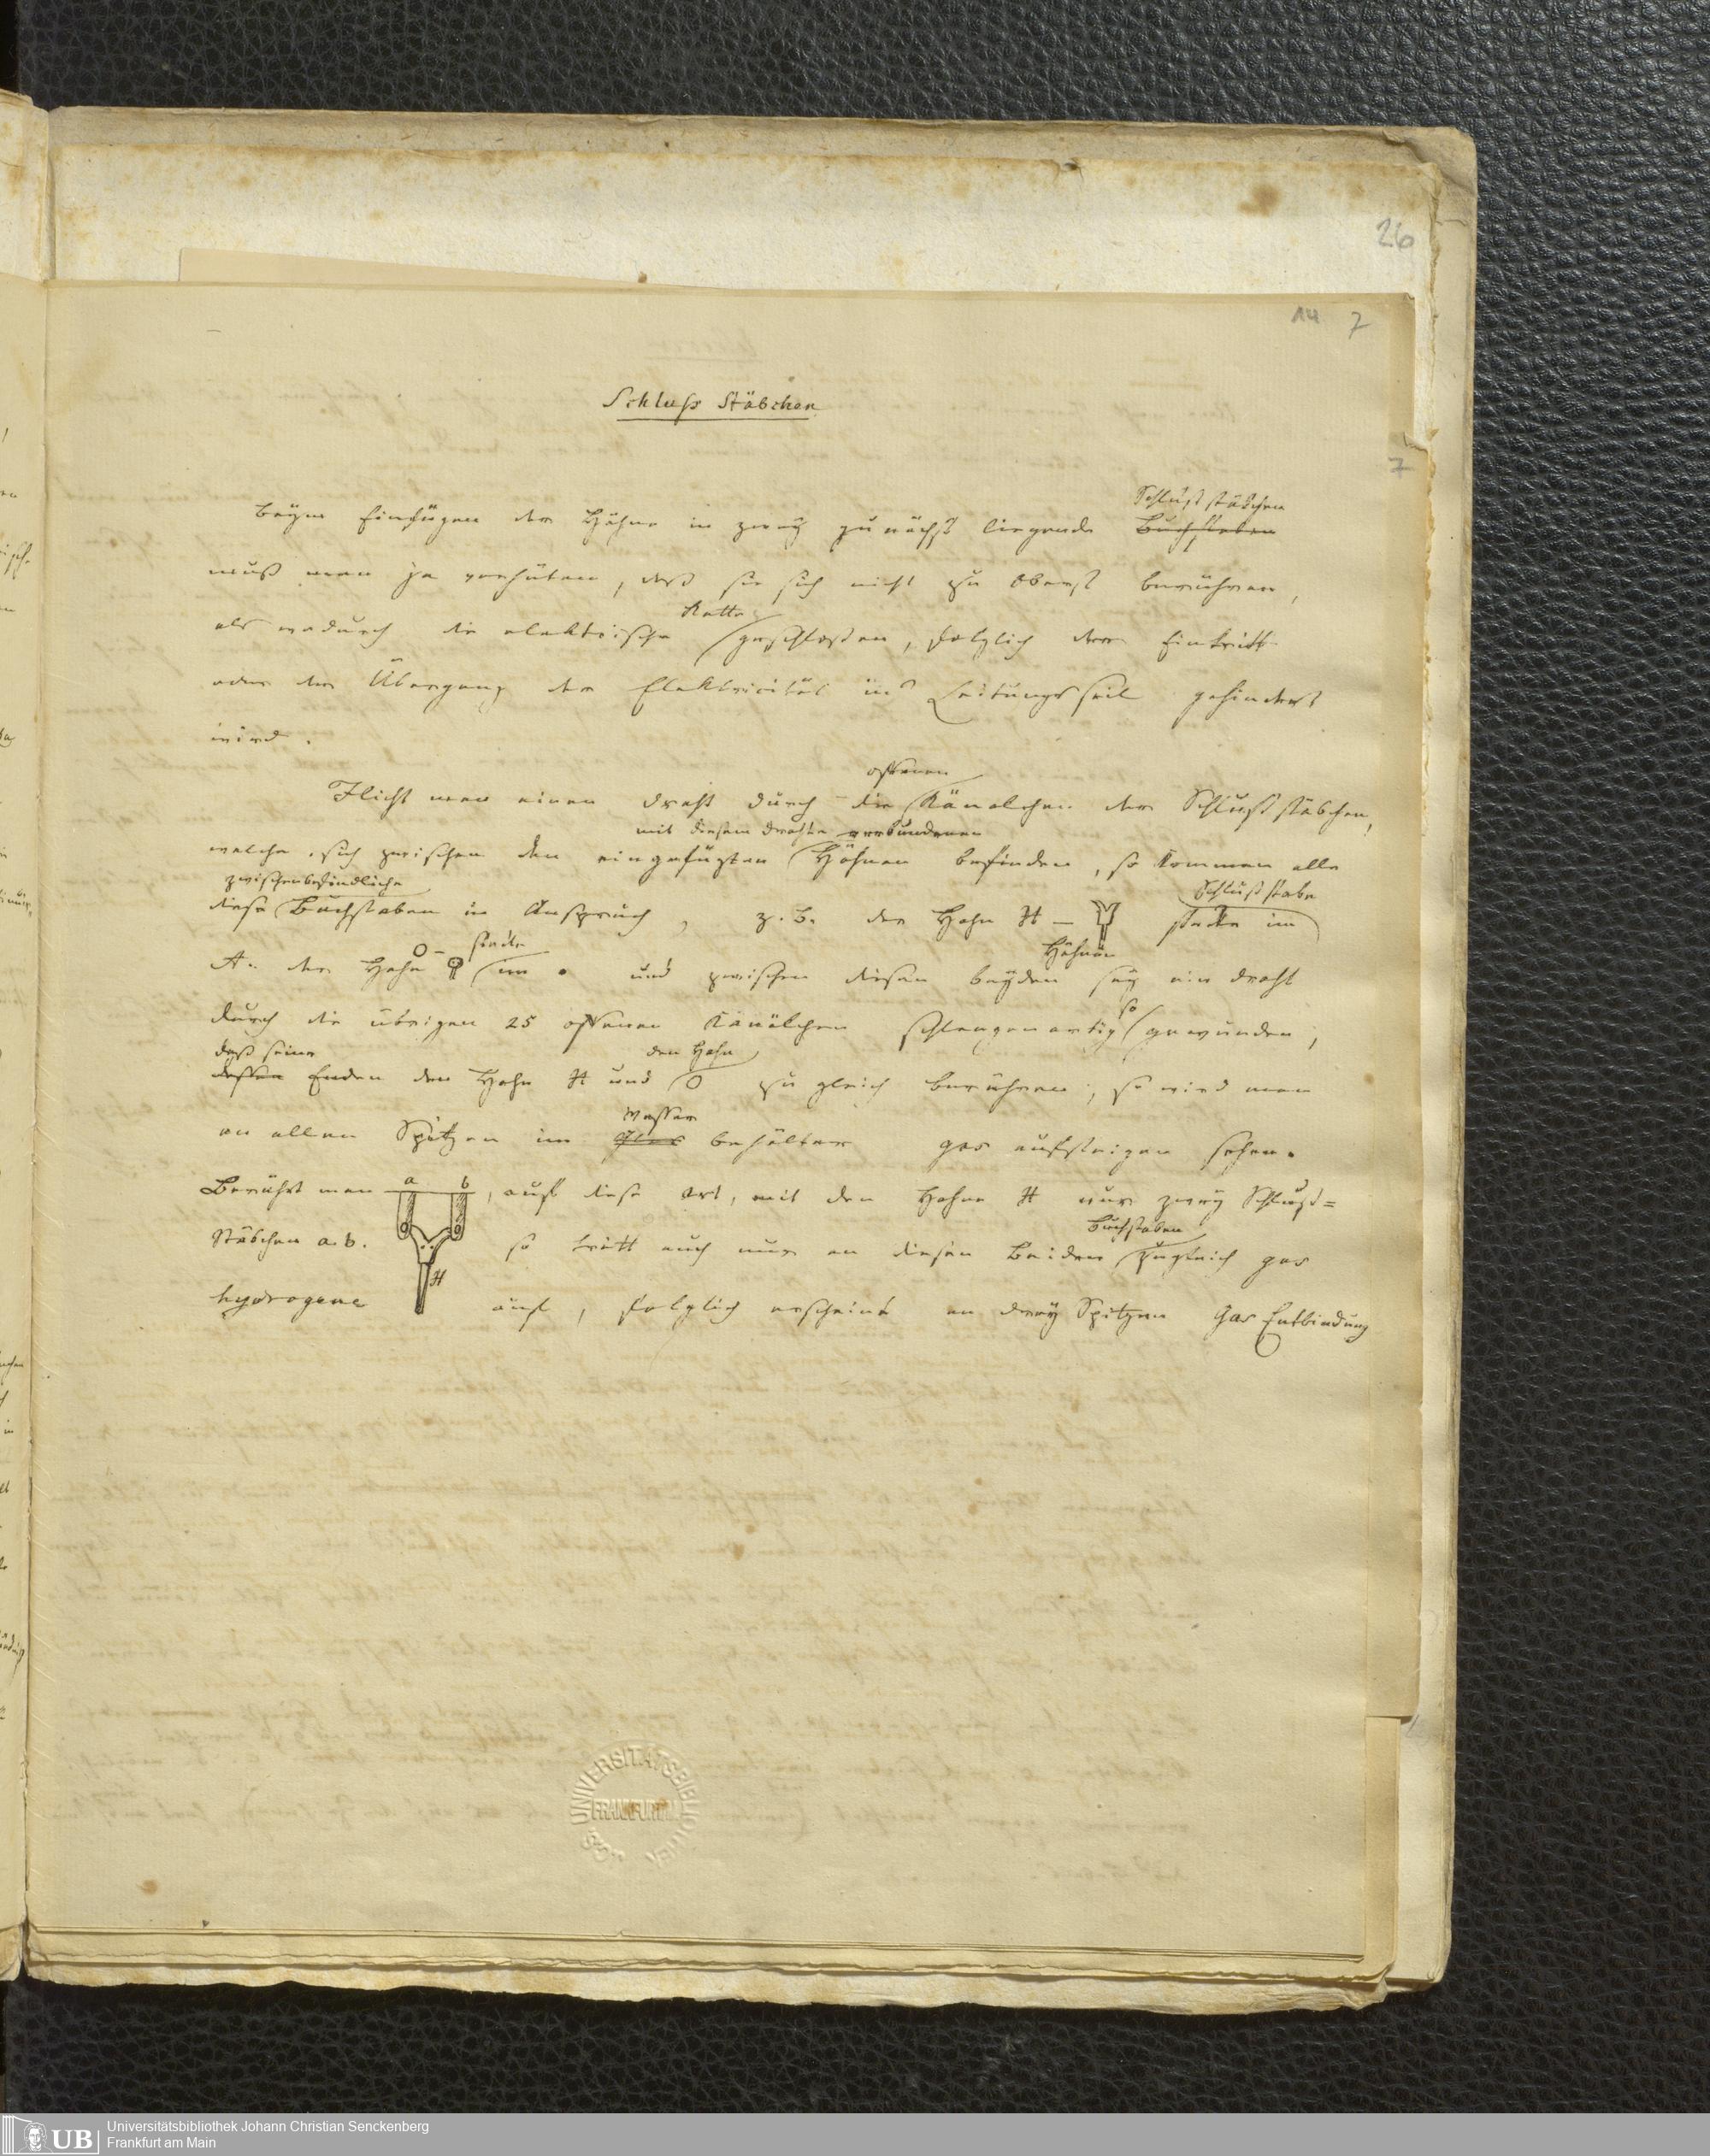 26
14 7
7
Schluss Stäbchen
Schlußstäbchen
Beym Einfügen der Hähne in zwey zunächst liegende Buchstaben
muß man ja verhüten, daß sie sich nicht zu Oberst berühren,
Kette
als wodurch die elektrische geschlossen, folglich der Eintritt
oder der Übergang der Elektricität ins Leitungsseil gehindert
wird.
offenen
Flicht man einen Draht durch die Kanälchen der Schlußstäbchen,
mit diesem Drahte verbundenen
welche sich zwischen den eingefügten Hähnen befinden, so kommen alle
zwischenbefindliche
Schluß stabe
diese Buchstaben in Anspruch, z. B. der Hahn H – stecke im
O – stecke
Hähnen
A. der Hahn im . und zwischen diesen beyden sey ein Draht
so
durch die übrigen 25 offenen Kanälchen schlangenartig gewunden,
daß seine
den Hahn
dessen Enden den Hahn H und O zu gleich berühren, so wird man
Wasser
an allen Spitzen im Glas behälter gas aufsteigen sehen.
a b
Berührt man , auf diese Art, mit dem Hahne H nur zwey Schluß=
Buchstaben
Stäbchen a. b. so tritt auch nur an diesen Beiden zugleich gas
H
hydrogene auf, folglich erscheint an drey Spitzen Gas Entbindung
UNIVERSITÄTSBIBLIOTHEK
FRANKFURT/M.
UB
Universitätsbibliothek Johann Christian Senckenberg
Frankfurt am Main